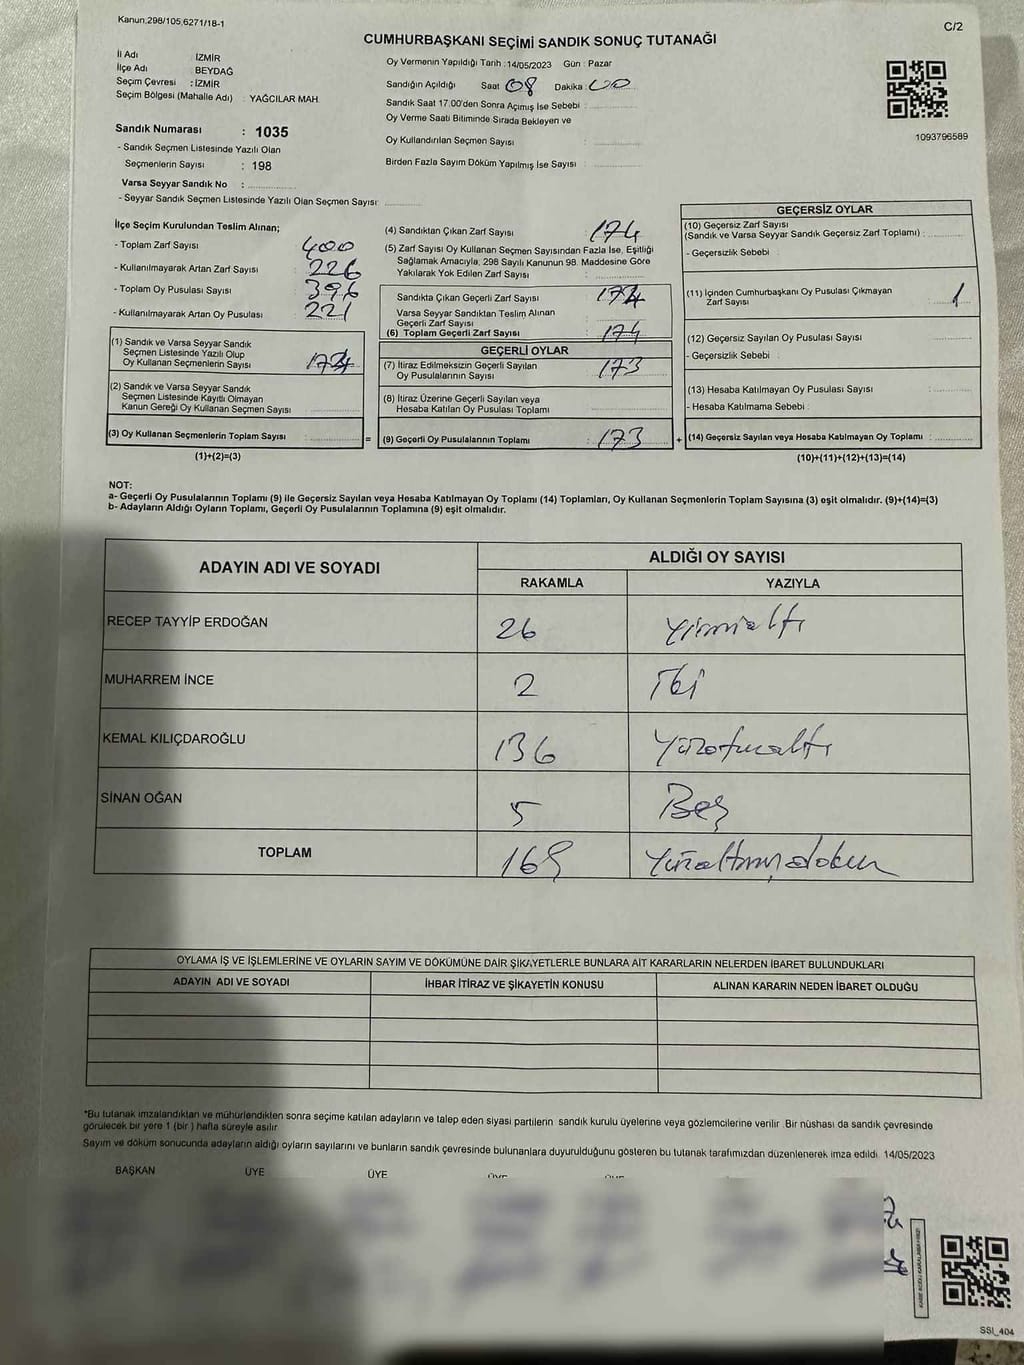 Kanun.298/105,6271/18-1
C/2
CUMHURBAŞKANI SEÇİMİ SANDIK SONUÇ TUTANAĞI
İl Adı : İZMİR
İlçe Adı : BEYDAĞ
Seçim Çevresi : İZMİR
Seçim Bölgesi (Mahalle Adı) : YAĞCILAR MAH.
Sandık Numarası : 1035
- Sandık Seçmen Listesinde Yazılı Olan
Seçmenlerin Sayısı : 198
Varsa Seyyar Sandık No :
- Seyyar Sandık Seçmen Listesinde Yazılı Olan Seçmen Sayısı:
Oy Vermenin Yapıldığı Tarih :14/05/2023 Gün : Pazar
Sandığın Açıldığı Saat 08 Dakika 00
Sandık Saat 17.00'den Sonra Açımış İse Sebebi :
Oy Verme Saati Bitiminde Sırada Bekleyen ve
Oy Kullandırılan Seçmen Sayısı :
Birden Fazla Sayım Döküm Yapılmış İse Sayısı :
1093796589
İlçe Seçim Kurulundan Teslim Alınan;
- Toplam Zarf Sayısı : 400
- Kullanılmayarak Artan Zarf Sayısı : 226
- Toplam Oy Pusulası Sayısı : 396
- Kullanılmayarak Artan Oy Pusulası : 221
(1) Sandık ve Varsa Seyyar Sandık
Seçmen Listesinde Yazılı Olup
Oy Kullanan Seçmenlerin Sayısı : 174
(2) Sandık ve Varsa Seyyar Sandık
Seçmen Listesinde Kayıtlı Olmayan
Kanun Gereği Oy Kullanan Seçmen Sayısı :
(3) Oy Kullanan Seçmenlerin Toplam Sayısı :
=
(1)+(2)=(3)
(4) Sandıktan Çıkan Zarf Sayısı : 174
(5) Zarf Sayısı Oy Kullanan Seçmen Sayısından Fazla İse, Eşitliği
Sağlamak Amacıyla, 298 Sayılı Kanunun 98. Maddesine Göre
Yakılarak Yok Edilen Zarf Sayısı :
Sandıkta Çıkan Geçerli Zarf Sayısı : 174
Varsa Seyyar Sandıktan Teslim Alınan
Geçerli Zarf Sayısı :
(6) Toplam Geçerli Zarf Sayısı : 174
GEÇERLİ OYLAR
(7) İtiraz Edilmeksizin Geçerli Sayılan
Oy Pusulalarının Sayısı : 173
(8) İtiraz Üzerine Geçerli Sayılan veya
Hesaba Katılan Oy Pusulası Toplamı :
(9) Geçerli Oy Pusulalarının Toplamı : 173
+
GEÇERSİZ OYLAR
(10) Geçersiz Zarf Sayısı
(Sandık ve Varsa Seyyar Sandık Geçersiz Zarf Toplamı) :
- Geçersizlik Sebebi :
(11) İçinden Cumhurbaşkanı Oy Pusulası Çıkmayan
Zarf Sayısı : 1
(12) Geçersiz Sayılan Oy Pusulası Sayısı :
- Geçersizlik Sebebi :
(13) Hesaba Katılmayan Oy Pusulası Sayısı :
- Hesaba Katılmama Sebebi :
(14) Geçersiz Sayılan veya Hesaba Katılmayan Oy Toplamı :
(10)+(11)+(12)+(13)=(14)
NOT:
a- Geçerli Oy Pusulalarının Toplamı (9) ile Geçersiz Sayılan veya Hesaba Katılmayan Oy Toplamı (14) Toplamları, Oy Kullanan Seçmenlerin Toplam Sayısına (3) eşit olmalıdır. (9)+(14)=(3)
b- Adayların Aldığı Oyların Toplamı, Geçerli Oy Pusulalarının Toplamına (9) eşit olmalıdır.
ADAYIN ADI VE SOYADI ALDIĞI OY SAYISI
RAKAMLA YAZIYLA
RECEP TAYYİP ERDOĞAN 26 Yirmialtı
MUHARREM İNCE 2 İki
KEMAL KILIÇDAROĞLU 136 Yüzotuzaltı
SİNAN OĞAN 5 Beş
TOPLAM 169 Yüzaltmışdokuz
OYLAMA İŞ VE İŞLEMLERİNE VE OYLARIN SAYIM VE DÖKÜMÜNE DAİR ŞİKAYETLERLE BUNLARA AİT KARARLARIN NELERDEN İBARET BULUNDUKLARI
ADAYIN ADI VE SOYADI İHBAR İTİRAZ VE ŞİKAYETİN KONUSU ALINAN KARARIN NEDEN İBARET OLDUĞU
*Bu tutanak imzalandıktan ve mühürlendikten sonra seçime katılan adayların ve talep eden siyasi partilerin sandık kurulu üyelerine veya gözlemcilerine verilir. Bir nüshası da sandık çevresinde
görülecek bir yere 1 (bir ) hafta süreyle asılır.
Sayım ve döküm sonucunda adayların aldığı oyların sayılarını ve bunların sandık çevresinde bulunanlara duyurulduğunu gösteren bu tutanak tarafımızdan düzenlenerek imza edildi. 14/05/2023
BAŞKAN ÜYE ÜYE
SSI_404